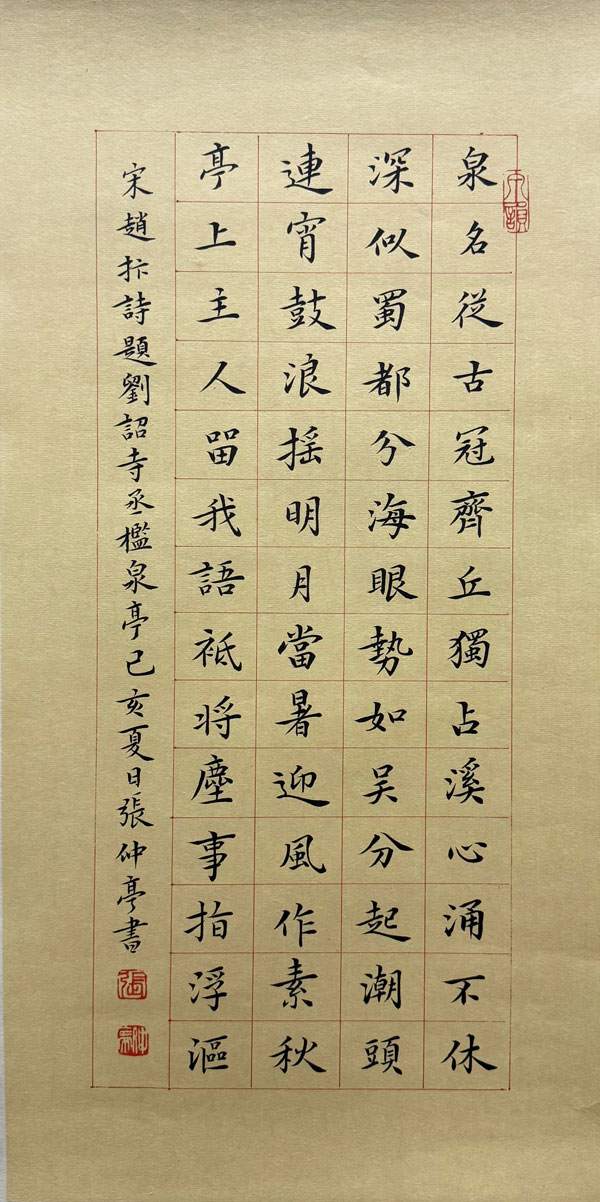 泉名從古冠齊丘獨占溪心涌不休
深似蜀都分海眼勢如吴分起潮頭
連宵鼓浪摇明月當暑迎風作素秋
亭上主人畱我語祗將塵事指浮漚
宋趙抃詩題劉詔寺丞檻泉亭己亥夏日張仲亭書
張